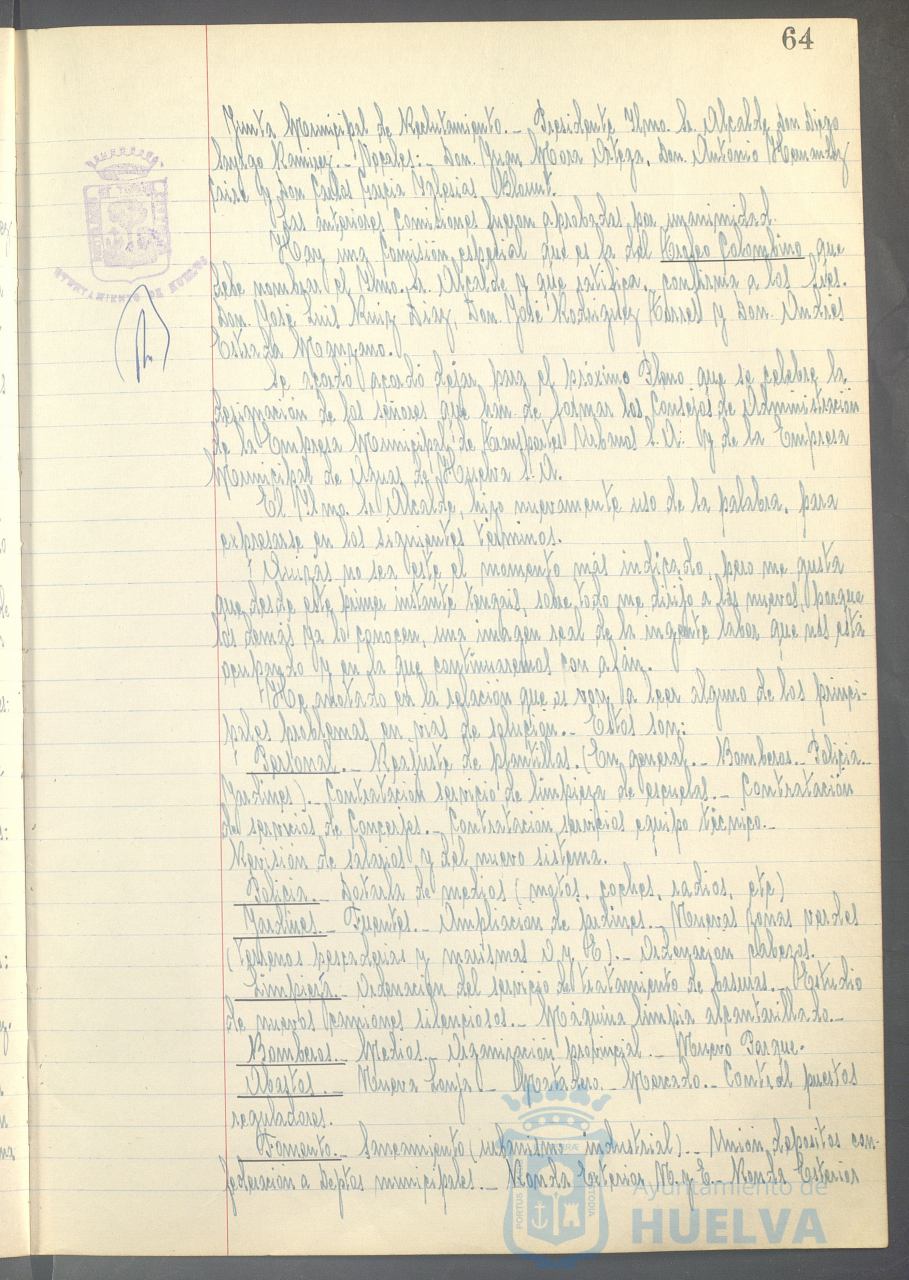 64
Junta Municipal de Reclutamiento.- Presidente Ilmo. Sr. Alcalde, Don Diego
Ramirez.- Vocales:- Don Juan Mora Ortega, Don Antonio Hernandez
y Don Carlos Garcia Iglesias
Las anteriores Comisiones fueron aprobadas por unanimidad.
Hay una Comisión especial que es la del Trofeo Colombino que
debe nombrar el Ilmo. Sr. Alcalde y que ratifica, confirma a los Sres.
Don José Luis Ruiz Diaz, Don José Rodriguez y Don Andrés
Estrada Manzano.
Se acordó acordó dejar para el próximo Pleno que se celebre la
designación de los señores que han de formar los Consejos de Administración
de la Empresa Municipal de Transportes Urbanos S.A. y de la Empresa
Municipal de Aguas de Huelva S.A.
El Ilmo. Sr. Alcalde, hizo nuevamente uso de la palabra, para
expresarse en los siguientes términos.
"Quizás no sea este el momento más indicado, pero me gusta
que desde este primer instante tengais, sobre todo me dirijo a los nuevos, porque
los demás ya lo conocen, una imagen real de la ingente labor que nos está
ocupando y en la que continuaremos con afán.
He anotado en la relación que os voy a leer alguno de los princi-
pales problemas en vias de solución.- Estos son:
Personal.- Reajuste de plantillas. (En general.- Bomberos.- Policia.-
Jardines).- Contratación servicio de limpieza de escuelas.- Contratación
de servicios de Conserjes.- Contratación servicios equipo técnico.-
Revisión de salarios y del nuevo sistema.
Policia.- Dotarla de medios (motos, coches, radios, etc)
Jardines.- Fuentes.- Ampliación de jardines.- Nuevas zonas verdes
(Terrenos pescaderias y marismas A y E).- Ordenacion cabezos.
Limpieza.- Ordenación del servicio de tratamiento de basuras.- Estudio
de nuevos camiones silenciosos.- Maquina limpia alcantarillado.-
Bomberos.- Medios.- Organización provincial.- Nuevo Parque.
Abastos.- Nueva Lonja.- Matadero.- Mercado.- Control puestos
reguladores.
Fomento.- Saneamiento (urbanismo industrial).- Unión depositos con-
federacion a deptos municipales.- Ronda Exterior N. y E.- Ronda Exterior
AYUNTAMIENTO DE HUELVA
PORTUS
CUSTODIA
Ayuntamiento de
HUELVA